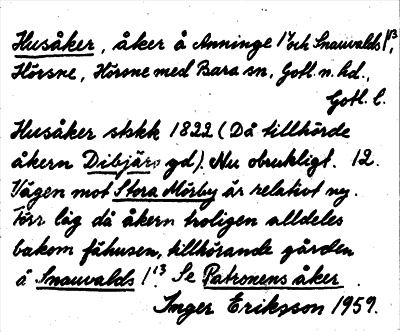 Husåker, åker å Anninge 1⁴ och Snauvalds 1¹³,
Hörsne, Hörsne med Bara sn, Gotl. n. hd.,
Gotl. l.
Husåker stskk 1822 (Då tillhörde
åkern Dibjärs gd). Nu obrukligt. 12.
Vägen mot Stora Mörby är relativt ny.
Förr låg då åkern troligen alldeles
bakom fähusen, tillhörande gården
å Snauvalds 1¹³ Se Patronens åker.
Inger Eriksson 1959.